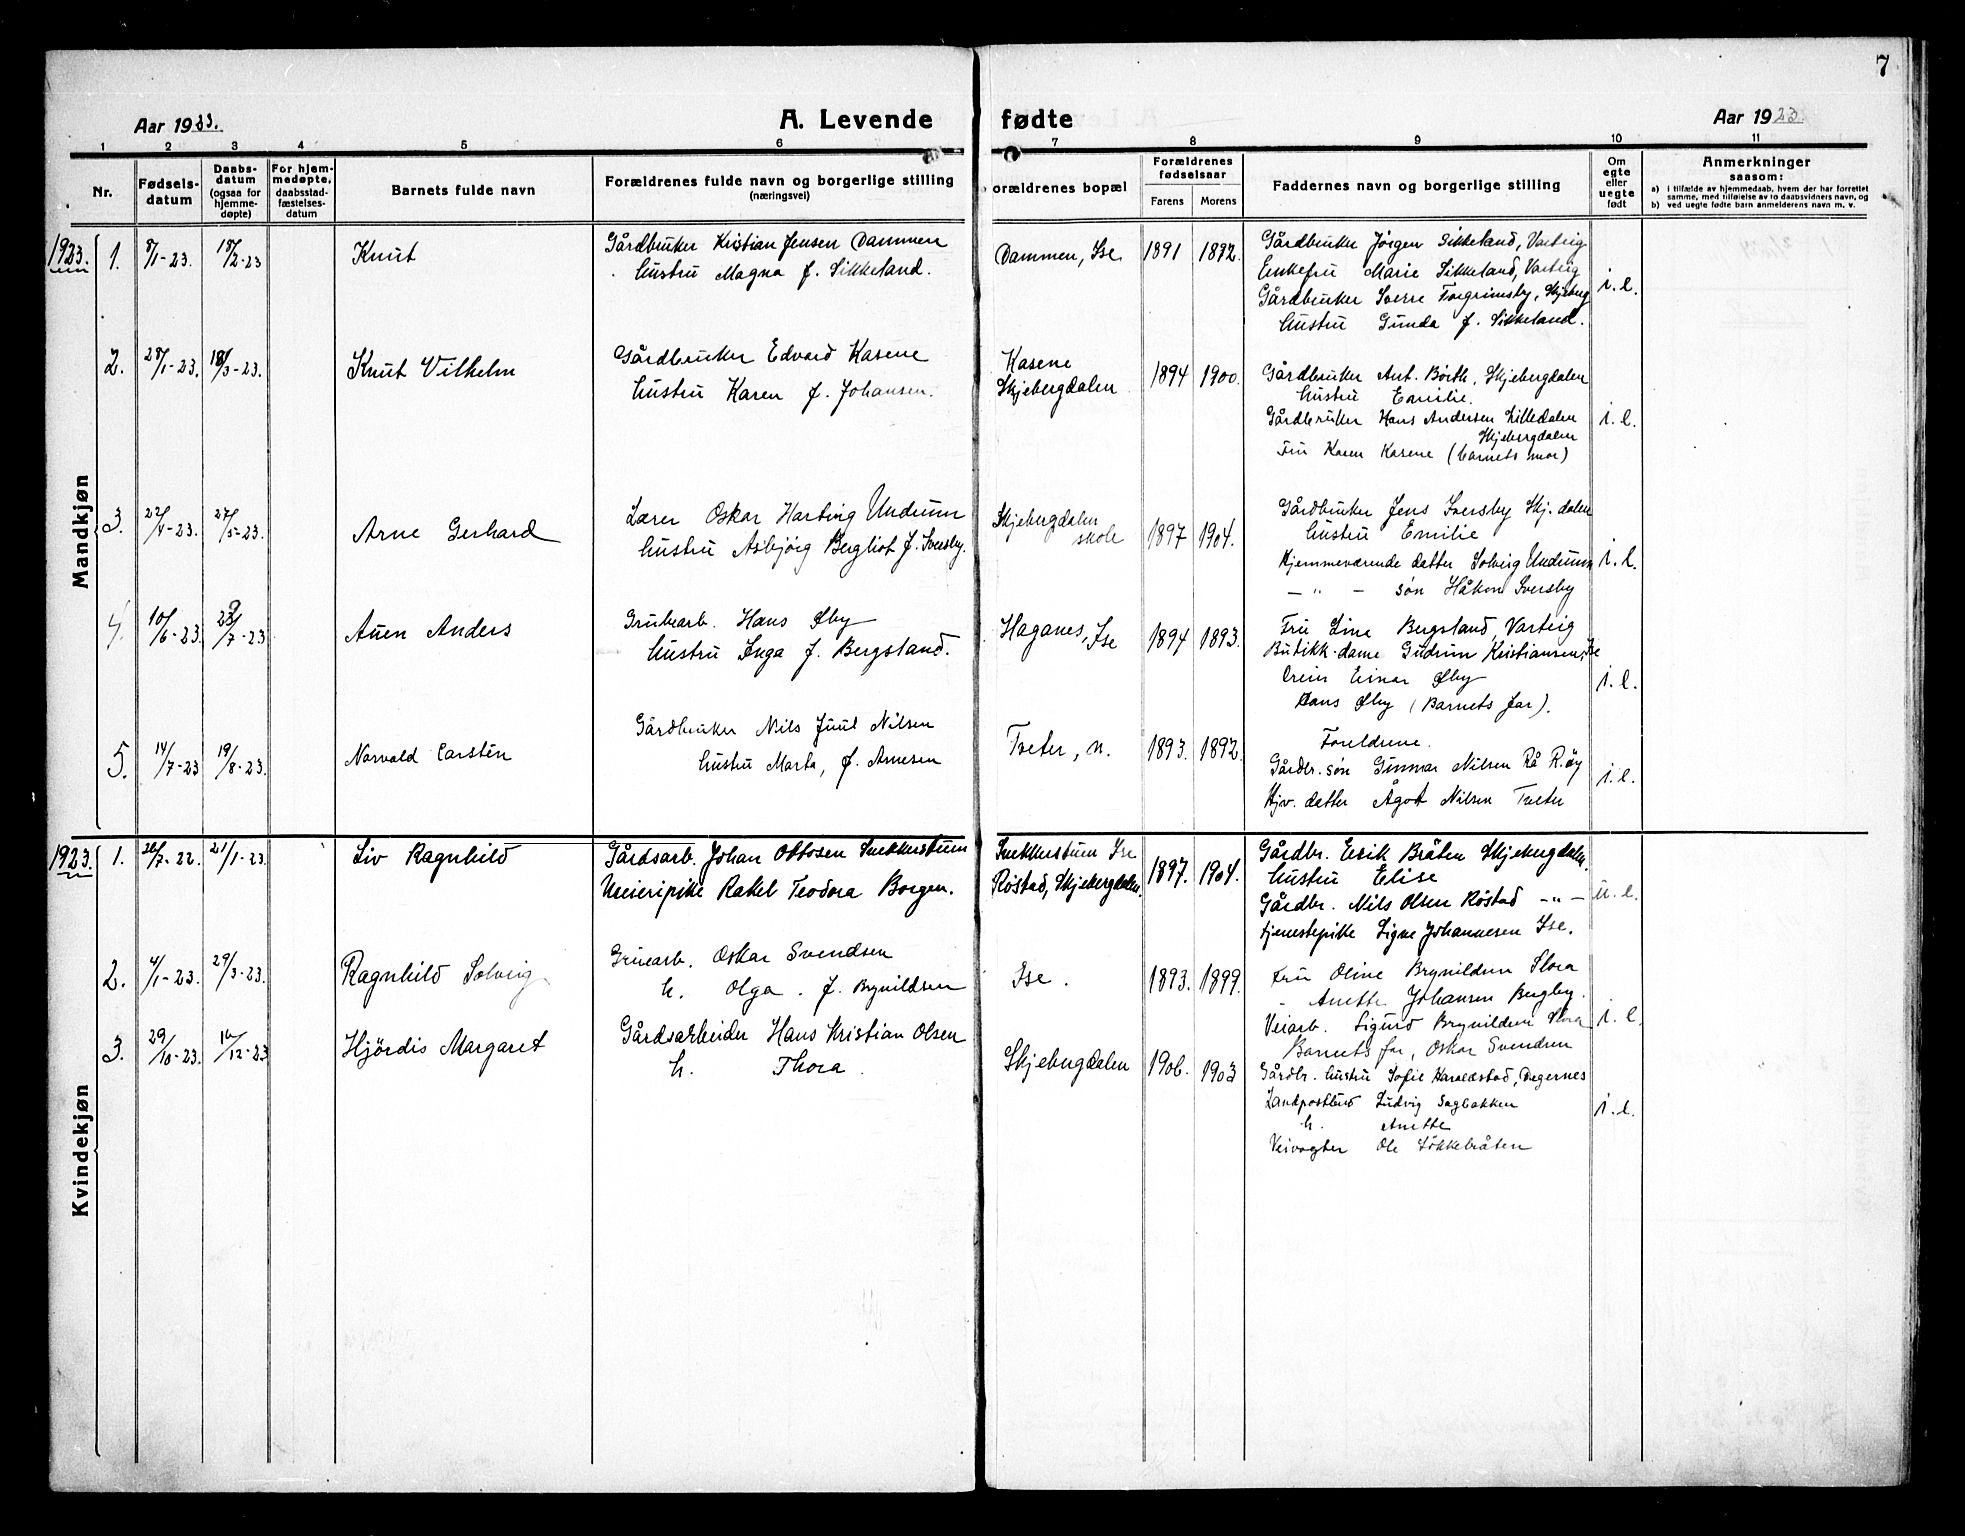 7
Aar 1923.
A. Levende fødte
Aar 1923.
1 2 3 4 5 6 7 8 9 10 11
Nr.
Fødsels-
datum
Daabs-
datum
(ogsaa for
hjemme-
døpte)
For hjem-
medøpte,
daabsstad-
fæstelses-
datum
Barnets fulde navn
Forældrenes fulde navn og borgerlige stilling
(næringsvei)
orældrenes bopæl
Forældrenes
fødselsaar
Farens Morens
Faddernes navn og borgerlige stilling
Om
egte
eller
uegte
født
Anmerkninger
saasom:
a) i tilfælde av hjemmedaab, hvem der har forrettet
samme, med tilføielse av to daabsvidners navn, og
b) ved uegte fødte barn anmelderens navn m. v.
Mandkjøn
1923.
1. 8/1-23. 18/2-23 Knut
Gårdbruker Kristian Jensen Dammen
Hustru Magna f. Sikkeland.
Dammen, Ise 1891 1892.
Gårdbruker Jørgen Sikkeland, Varteig
Enkefru Marie Sikkeland, Varteig
Gårdbruker Sverre Torgrimsby, Skjeberg
Hustru Gunda f. Sikkeland.
i. e.
2. 28/1-23. 18/3-23. Knut Vilhelm
Gårdbruker Edvard Kasene
Hustru Karen f. Johansen.
Kasene
Skjebergdalen 1894 1900.
Gårdbruker Ant. Skjebergdalen
Hustru Emilie.
Gårdbruker Hans Andersen Lilledalen
Skjebergdalen
Fru Karen Kasene (barnets mor)
i. e.
3. 22/4-23. 27/5-23. Arne Gerhard
Lærer Oskar Harting Undrum
Hustru Asbjørg Bergliot f. Sversby.
Skjebergdalen
skole 1897 1904.
Gårdbruker Jens Sversby Skj. dalen
Hustru Emilie
Hjemmeværende datter Solveig Undrum
— " — søn Håkon Sversby
i. e.
4. 10/6-23. /7-23 Anders
Grubearb. Hans Øby
Hustru Inga f. Bergsland.
Haganes, Ise 1894 1893.
Fru Lina Bergsland, Varteig
Butikk-dame Gudrun Kristiansen, Ise
Einar Øby
Hans Øby (Barnets far).
i. e.
5. 14/7-23 19/8-23. Norvald Carsten
Gårdbruker Nils Juul Nilsen
Hustru Marta, f. Arnesen
Tveter, n. 1893. 1892.
Foreldrene.
Gårdbr. søn Gunnar Nilsen Rå R.øy
Hjv. datter Ågot Nilsen Tveter
i. e.
Kvindekjøn
1923.
1. 26/7-22. 21/1-23. Liv Ragnhild
Gårdsarb. Johan Ottosen Snekkerstuen
Meieripike Rakel Teodora Borgen.
Snekkerstuen Ise
Røstad, Skjebergdalen. 1897. 1904.
Gårdbr. Erik Bråten Skjebergdalen.
Hustru Elise
Gårdbr. Nils Olsen Røstad —"—
Tjenestepike Signe Johannesen Ise.
u. e.
2. 4/1-23. 29/3-23. Ragnhild Solveig
Gruearb. Oskar Svendsen
h. Olga . f. Brynildsen
Ise. 1893. 1899.
Fru Oline Brynildsen Flora
" Anette Johansen Bergby.
Veiarb. Sigurd Brynildsen Flora
Barnets far, Oskar Svendsen
i. e.
3. 29/10-23. 16/12-23 Hjördis Margaret
Gårdsarbeider Hans Kristian Olsen
h. Thora.
Skjebergdalen 1906. 1903
Gårdbr. hustru Sofie Haraldstad, Degernes
Landpostbud Ludvig Sagbakken
h. Anette
Veivogter Ole Løkkebråten
i. e.